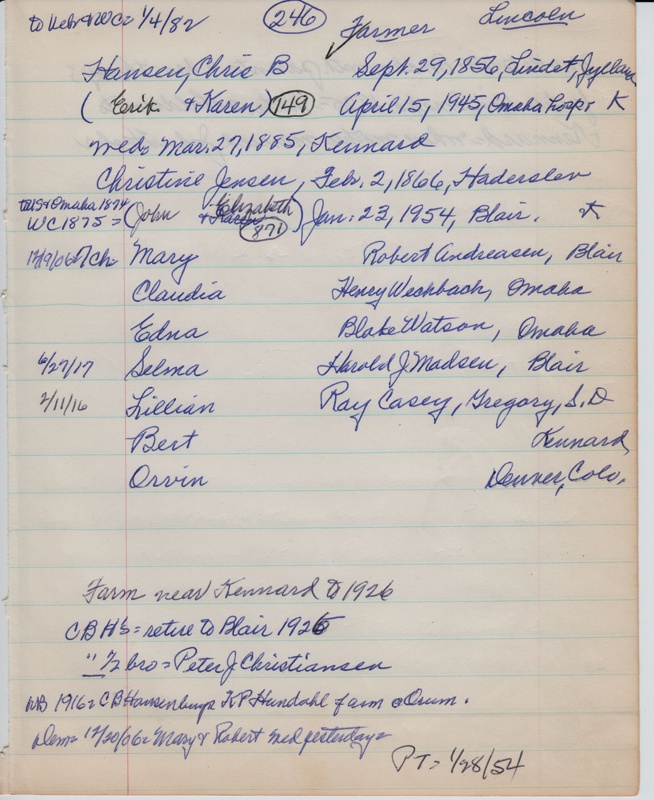 to Nebr & WC = 1/4/82 246 Farmer Lincoln
Hansen, Chris B Sept. 29, 1856, Lindet, Jylland
(Erik & Karen) 149 April 15, 1945, Omaha hosp. K
Wed. Mar. 27, 1885, Kennard
Christine Jensen, Febr. 2, 1866, Haderslev
to US & Omaha 1874
WC 1875 = (John & Karen Elizabeth) 871 Jan. 23, 1954, Blair. K
12/19/06 = 7 Ch = Mary Robert Andreasen, Blair
Claudia Henry Wechbach, Omaha
Edna Blake Watson, Omaha
6/27/17 Selma Harold J. Madsen, Blair
2/11/16 Lillian Ray Casey, Gregory, S.D
Bert Kennard
Orvin Denver, Colo.
Farm near Kennard to 1926
CBH's = retire to Blair 1926
" 1/2 bro = Peter J Christiansen
NB 1916 = CB Hansen buys K P Hundahl farm @ Orum.
Dem = 12/20/06 = Mary & Robert wed yesterday =
PT = 1/28/54